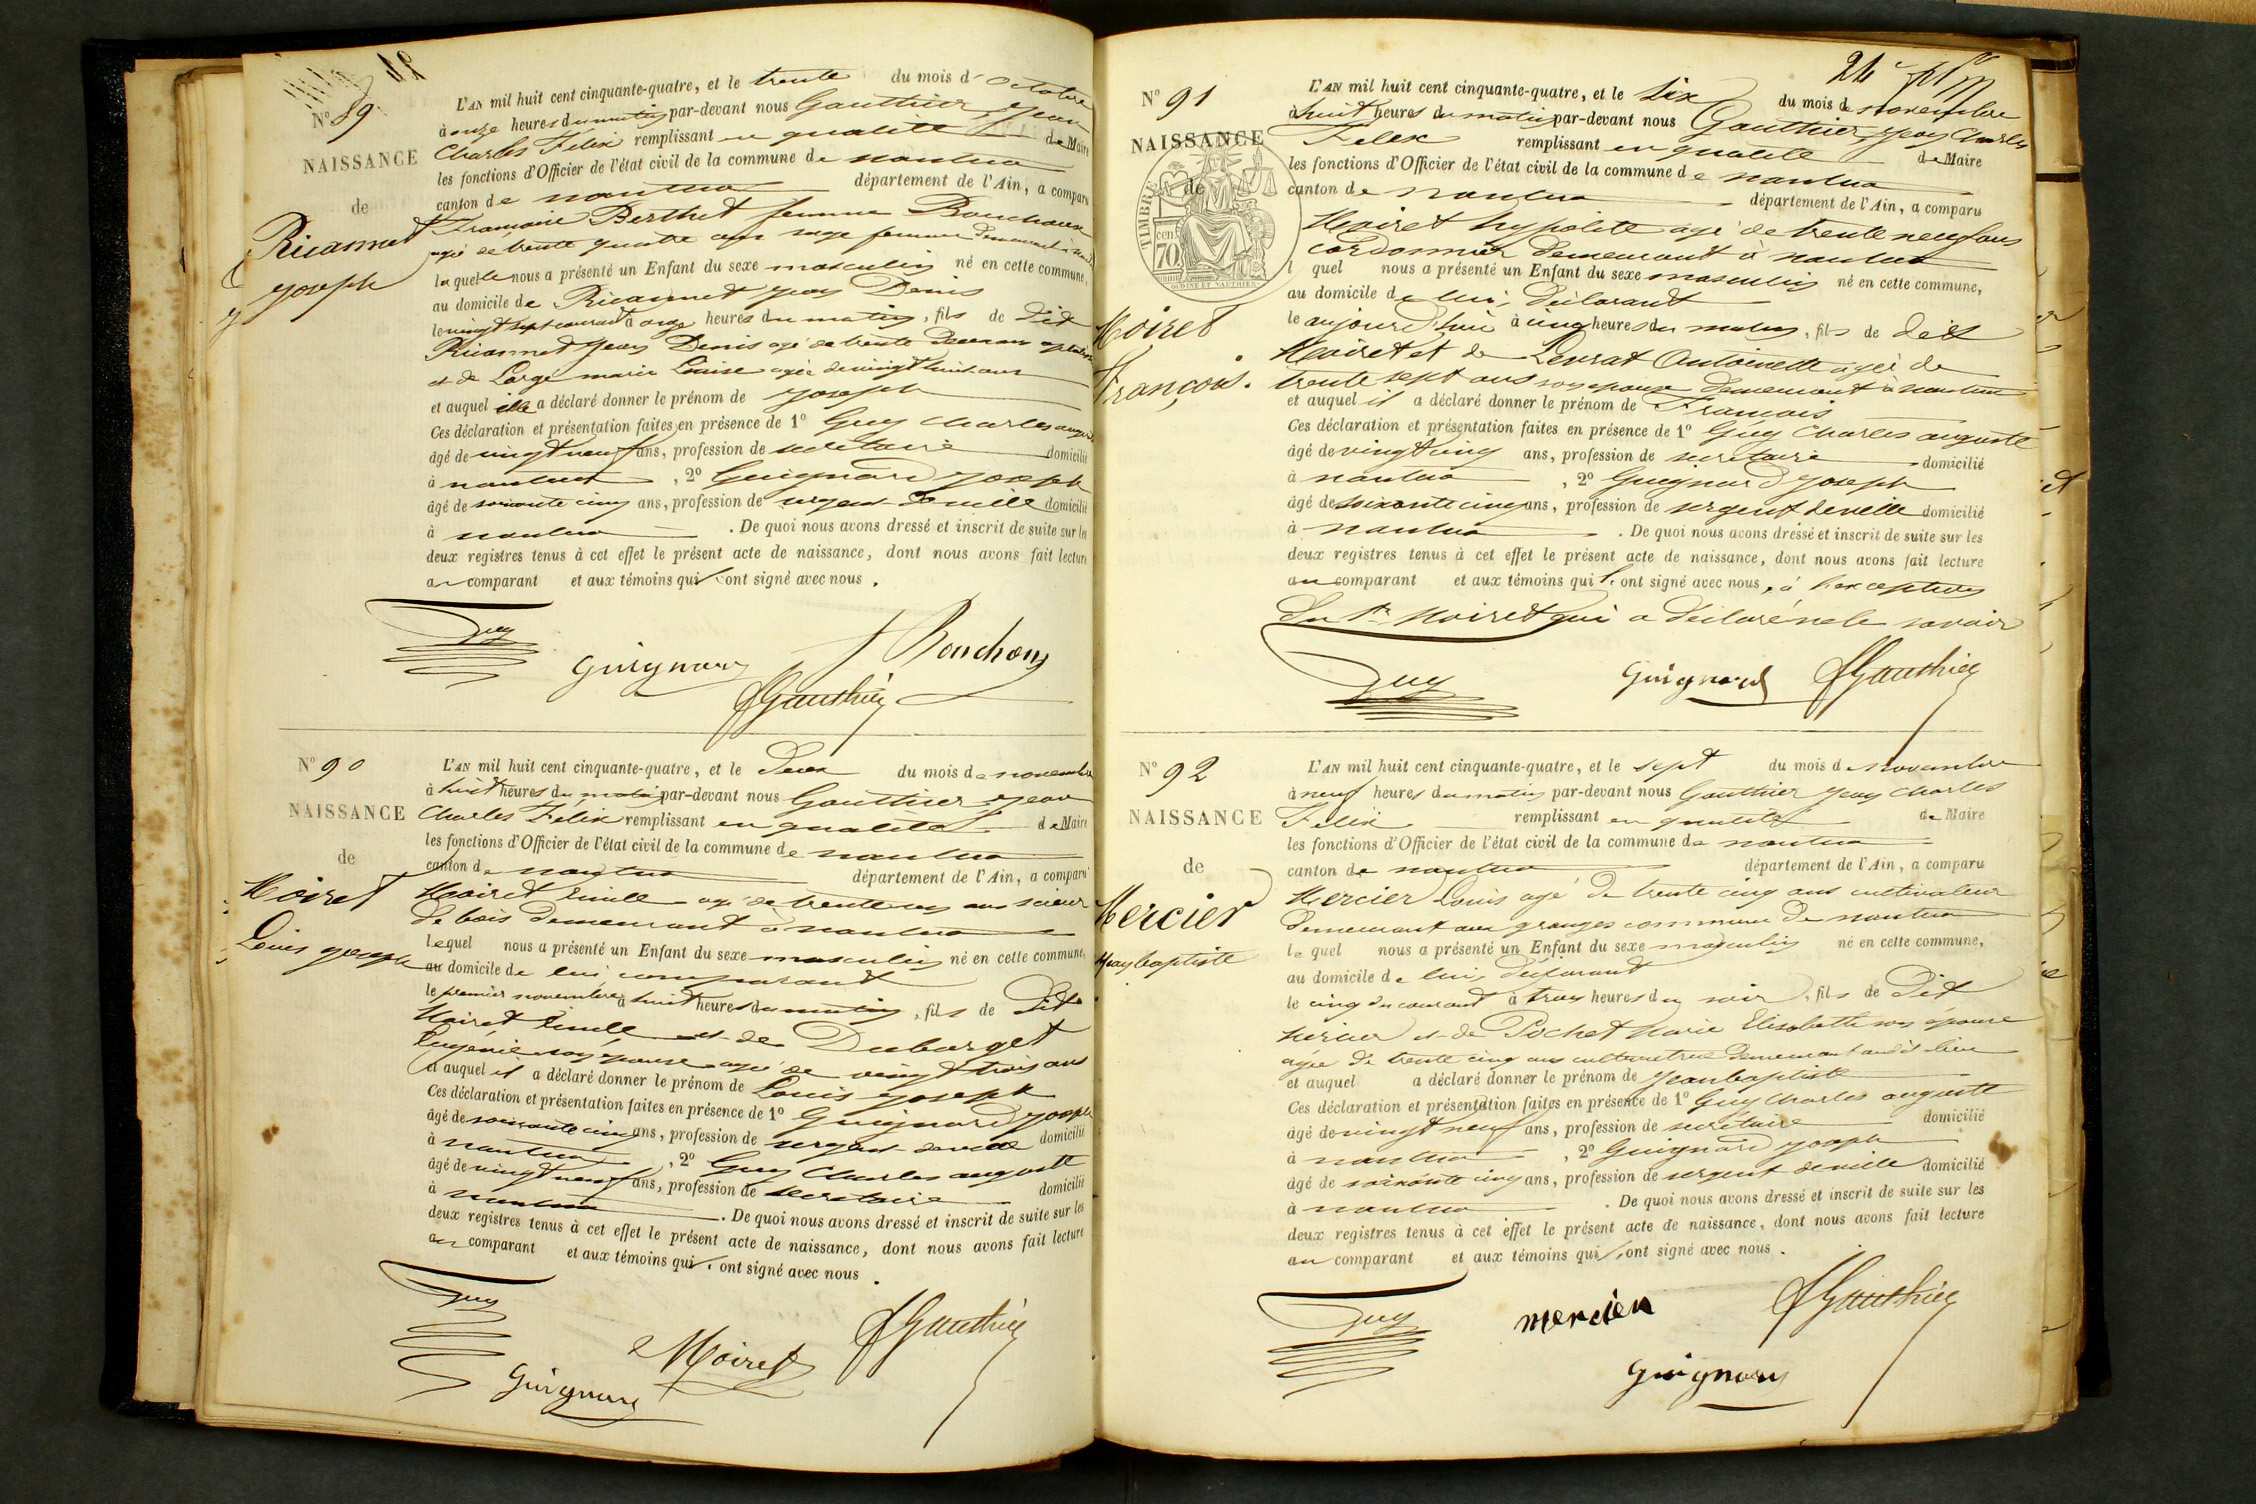 N° 89
NAISSANCE
de
Ricannet
Joseph
L'AN mil huit cent cinquante-quatre, et le trente du mois d'octobre
à onze heures du matin par-devant nous Gauthier Jean
Charles Félix remplissant en qualité de Maire
les fonctions d'Officier de l'état civil de la commune de nantua
canton de nantua département de l'Ain, a comparu
Françoise Berthet femme Bouchoux
agée de trente quatre ans sage femme demeurant à
laquelle nous a présenté un Enfant du sexe masculin né en cette commune,
au domicile de Ricannet Jean Denis
le vingt sept courant à onze heures du matin, fils de dit
Ricannet Jean Denis agé de trente
et de Large marie Louise agée de vingt huit ans
et auquel elle a déclaré donner le prénom de Joseph
Ces déclaration et présentation faites en présence de 1° Guy Charles auguste
âgé de vingt neuf ans, profession de secrétaire domicilié
à nantua, 2° Guignard Joseph
âgé de soixante cinq ans, profession de sergent de ville domicilié
à nantua. De quoi nous avons dressé et inscrit de suite sur les
deux registres tenus à cet effet le présent acte de naissance, dont nous avons fait lecture
au comparant et aux témoins qui l'ont signé avec nous.
Guy
Guignard
Bouchoux
Gauthier
N° 90
NAISSANCE
de
Moiret
Louis Joseph
L'AN mil huit cent cinquante-quatre, et le deux du mois de novembre
à huit heures du matin par-devant nous Gauthier Jean
Charles Félix remplissant en qualité de Maire
les fonctions d'Officier de l'état civil de la commune de nantua
canton de nantua département de l'Ain, a comparu
Moiret Emile agé de trente ans scieur
de bois demeurant à nantua
lequel nous a présenté un Enfant du sexe masculin né en cette commune,
au domicile de lui comparant
le premier novembre à huit heures du matin, fils de dit
Moiret Emile et de Dubarget
Eugénie son épouse agée de vingt trois ans
et auquel il a déclaré donner le prénom de Louis Joseph
Ces déclaration et présentation faites en présence de 1° Guignard Joseph
âgé de soixante cinq ans, profession de sergent de ville domicilié
à nantua, 2° Guy Charles auguste
âgé de vingt neuf ans, profession de secrétaire domicilié
à nantua. De quoi nous avons dressé et inscrit de suite sur les
deux registres tenus à cet effet le présent acte de naissance, dont nous avons fait lecture
au comparant et aux témoins qui l'ont signé avec nous.
Guy
Guignard
Moiret
Gauthier
N° 91
NAISSANCE
de
TIMBRE
70 cent
Moiret
François.
L'AN mil huit cent cinquante-quatre, et le six du mois de novembre
à huit heures du matin par-devant nous Gauthier Jean Charles
Félix remplissant en qualité de Maire
les fonctions d'Officier de l'état civil de la commune de nantua
canton de nantua département de l'Ain, a comparu
Moiret hypolite agé de trente neuf ans
cordonnier demeurant à nantua
l quel nous a présenté un Enfant du sexe masculin né en cette commune,
au domicile de lui, déclarant
le aujourd'hui à cinq heures du matin, fils de dit
Moiret et de Levrat Antoinette agée de
trente sept ans son épouse demeurant à nantua
et auquel il a déclaré donner le prénom de François
Ces déclaration et présentation faites en présence de 1° Guy Charles auguste
âgé de vingt cinq ans, profession de secrétaire domicilié
à nantua, 2° Guignard Joseph
âgé de soixante cinq ans, profession de sergent de ville domicilié
à nantua. De quoi nous avons dressé et inscrit de suite sur les
deux registres tenus à cet effet le présent acte de naissance, dont nous avons fait lecture
au comparant et aux témoins qui l'ont signé avec nous, à l'exception
du Sr Moiret qui a déclaré ne le savoir
Guy
Guignard
Gauthier
N° 92
NAISSANCE
de
Mercier
Jean baptiste
L'AN mil huit cent cinquante-quatre, et le sept du mois de novembre
à neuf heures du matin par-devant nous Gauthier Jean Charles
Félix remplissant en qualité de Maire
les fonctions d'Officier de l'état civil de la commune de nantua
canton de nantua département de l'Ain, a comparu
Mercier Louis agé de trente cinq ans cultivateur
demeurant aux granges commune de nantua
le quel nous a présenté un Enfant du sexe masculin né en cette commune,
au domicile de lui, déclarant
le cinq du courant à trois heures du soir, fils de dit
Mercier et de Pochet Marie Elisabeth son épouse
agée de trente cinq ans cultivatrice demeurant audit lieu
et auquel a déclaré donner le prénom de Jean baptiste
Ces déclaration et présentation faites en présence de 1° Guy Charles auguste
âgé de vingt neuf ans, profession de secrétaire domicilié
à nantua, 2° Guignard Joseph
âgé de soixante cinq ans, profession de sergent de ville domicilié
à nantua. De quoi nous avons dressé et inscrit de suite sur les
deux registres tenus à cet effet le présent acte de naissance, dont nous avons fait lecture
au comparant et aux témoins qui l'ont signé avec nous.
Guy
mercier
Gauthier
Guignard